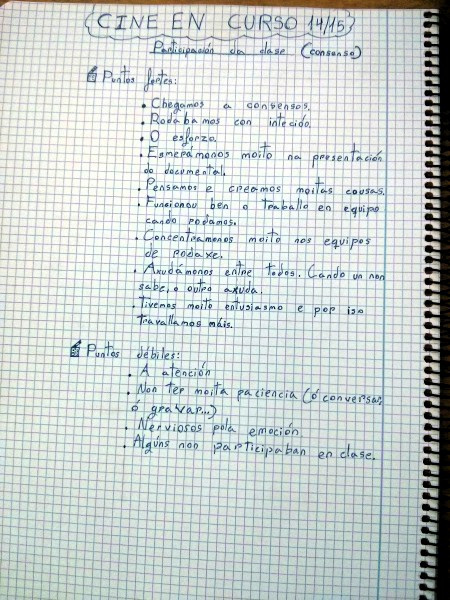 CINE EN CURSO 14/15
Participación da clase (consenso)
Puntos fortes:
• Chegamos a consensos.
• Rodabamos con inteción.
• O esforzo.
• Esmerámonos moito na presentación
do documental.
• Pensamos e creamos moitas cousas.
• Funcionou ben o traballo en equipo
cando rodamos.
• Concentramonos moito nos equipos
de rodaxe.
• Axudámonos entre todos. Cando un non
sabe, o outro axuda.
• Tivemos moito entusiasmo e por iso
travallamos máis.
Puntos débiles:
• A atención
• Non ter moita paciencia (ó conversar,
ó gravar...)
• Nerviosos pola emoción.
• Algúns non participaban en clase.